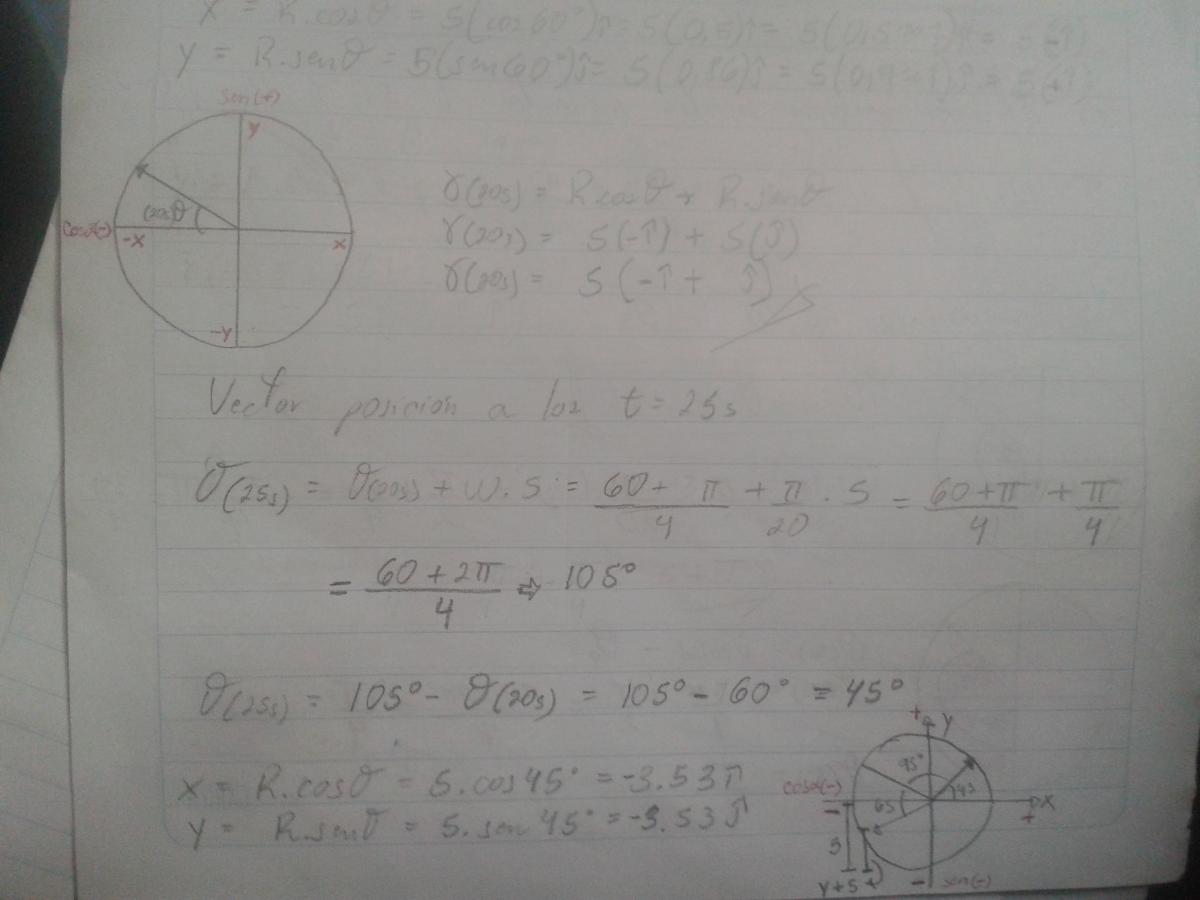 X = R.cosθ = 5(cos60°)î = 5(0,5)î =
Y = R.senθ = 5(sen60°)ĵ = 5(0,86)ĵ =
sen(+)
y
(20s)θ
cos(-)
-x
x
-y
r(20s) = R.cosθ + R.senθ
r(20s) = 5(-î) + 5(ĵ)
r(20s) = 5(-î + ĵ)
Vector posicion a los t = 25s
θ(25s) = θ(20s) + W.5 = 60+π/4 + π/20 . 5 = 60+π/4 + π/4
= 60+2π/4 ⇒ 105°
θ(25s) = 105° - θ(20s) = 105° - 60° = 45°
X = R.cosθ = 5.cos45° = -3.53î
Y = R.senθ = 5.sen45° = -3.53ĵ
+ y
cos(-)
45
x
+
-
5
y+5
- sen(-)